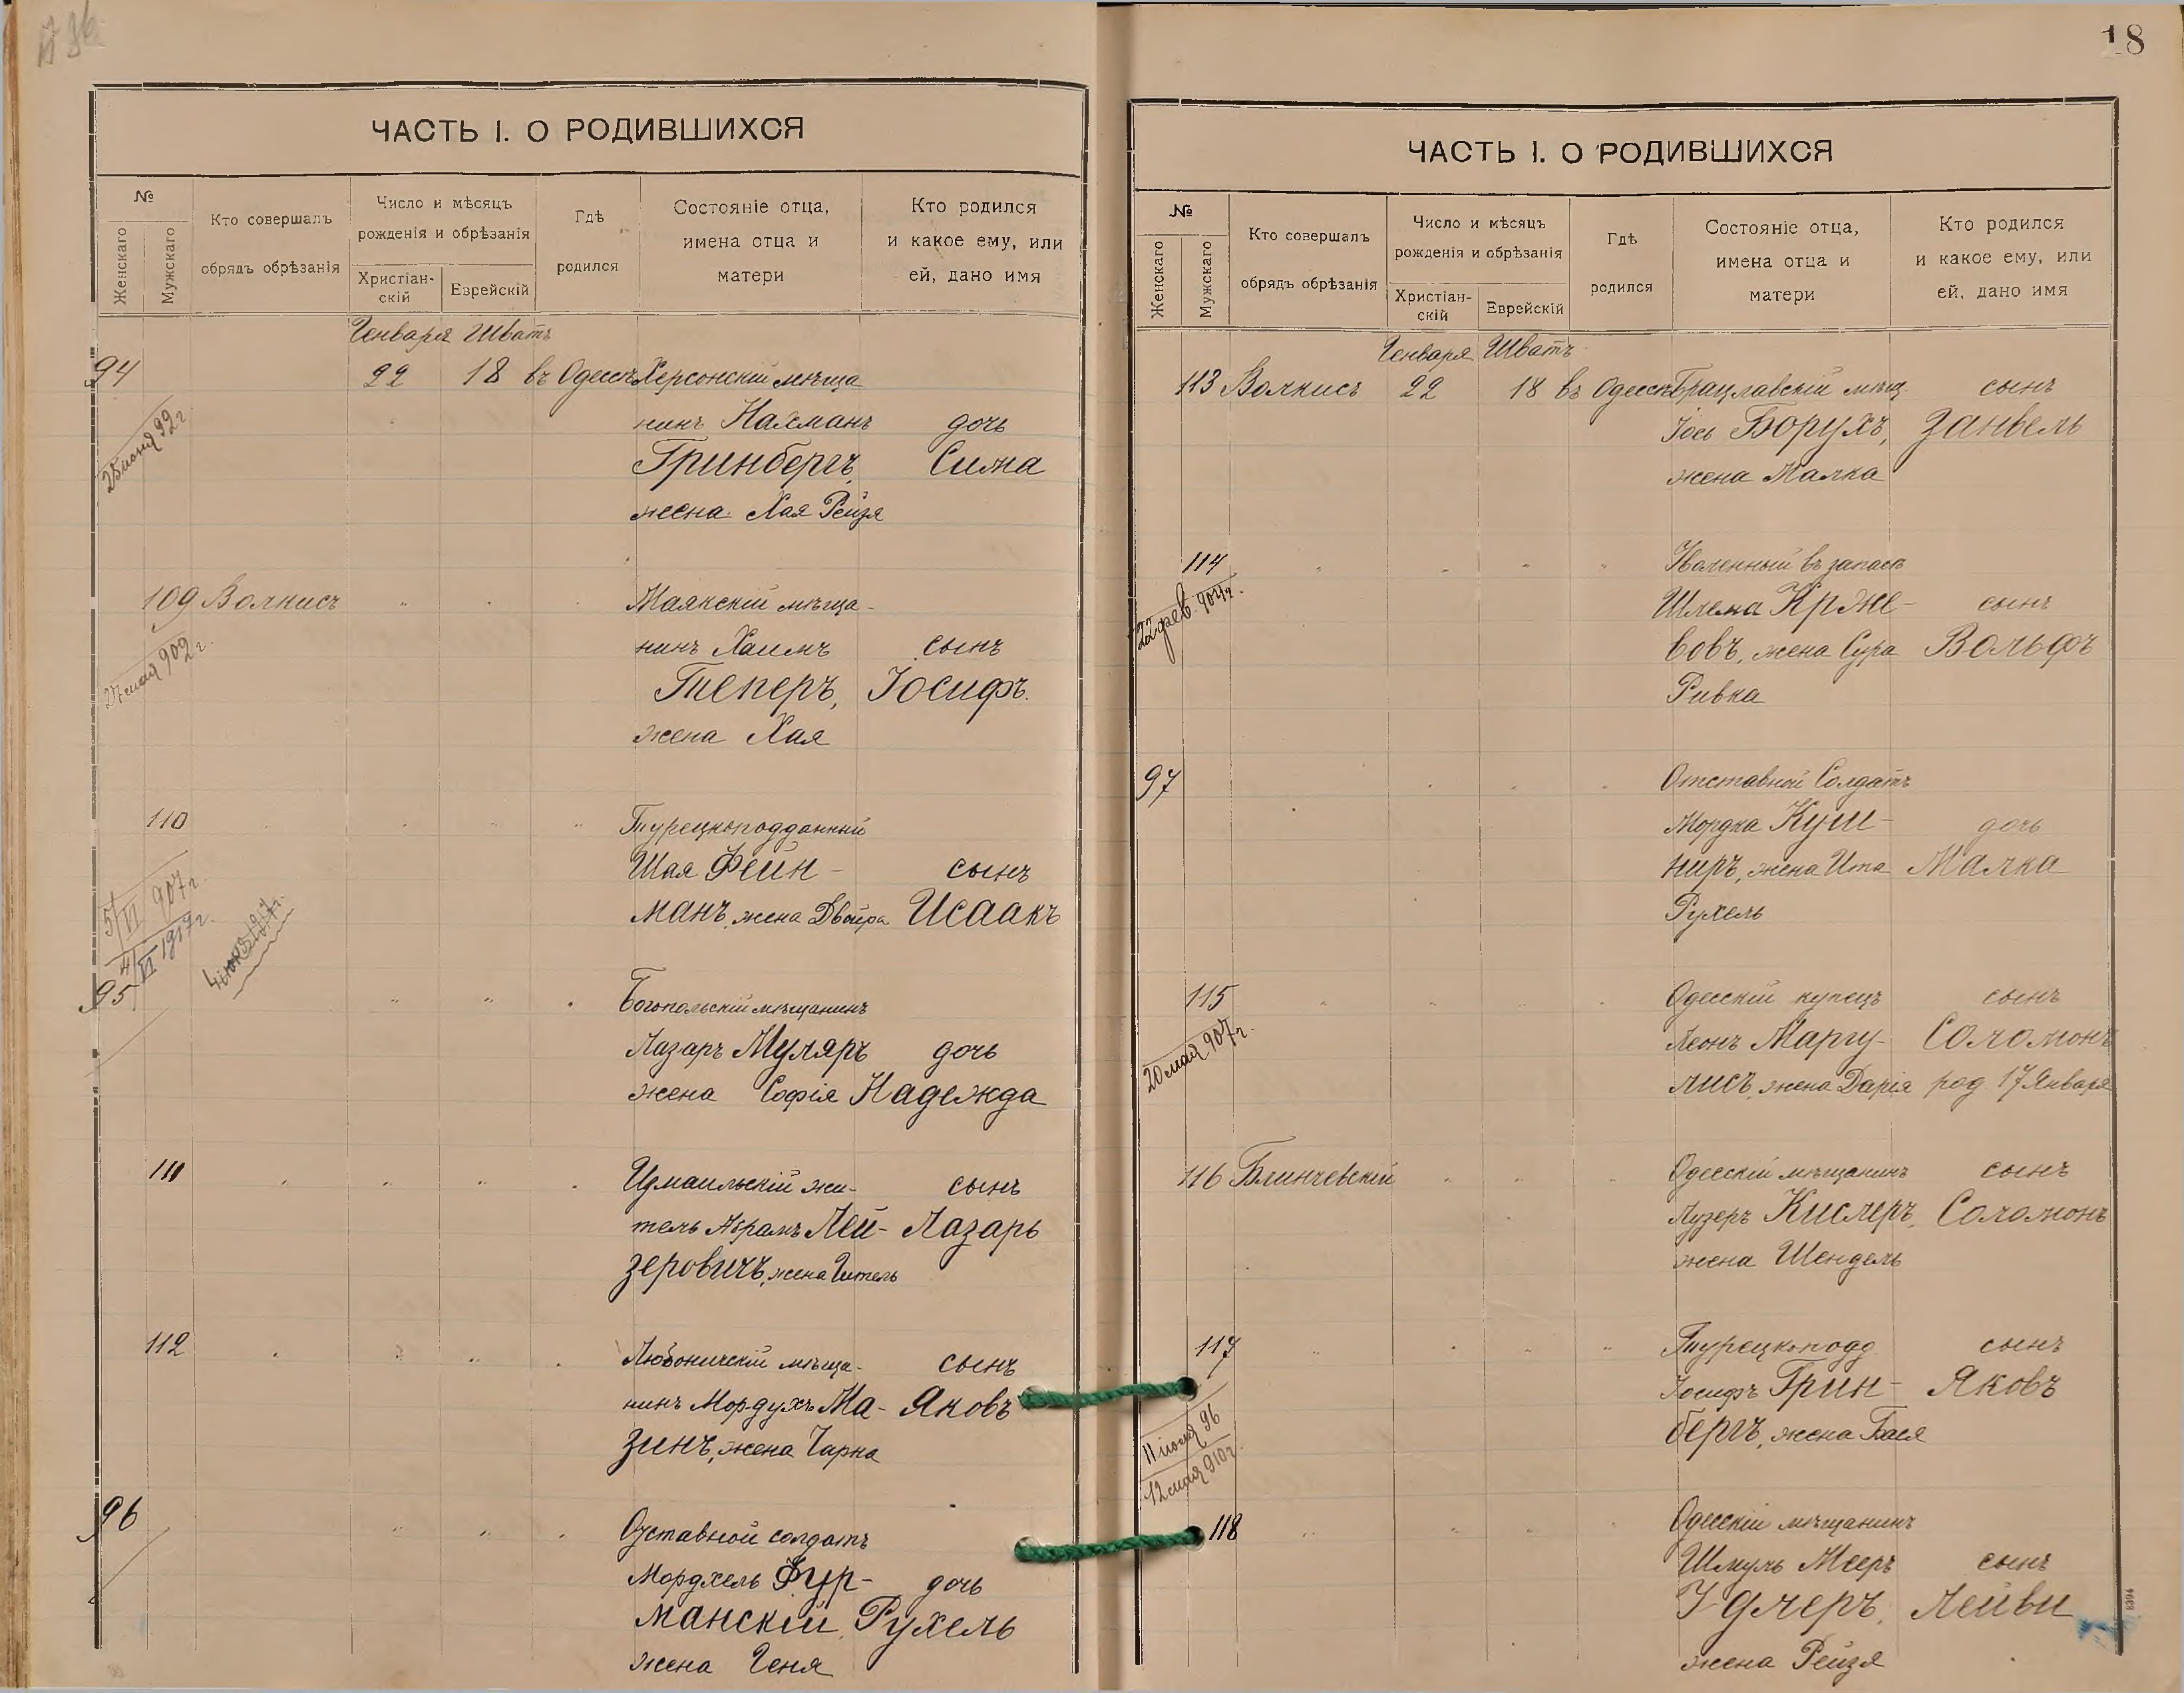 ЧАСТЬ I. О РОДИВШИХСЯ
№
Женскаго
Мужскаго
Кто совершалъ
обрядъ обрѣзанія
Число и мѣсяцъ
рожденія и обрѣзанія
Христіан-
скій
Еврейскій
Гдѣ
родился
Состояніе отца,
имена отца и
матери
Кто родился
и какое ему, или
ей, дано имя
Генваря Шватъ
94 22 18 въ Одессѣ Херсонскій мѣща
нинъ Нахманъ дочь
Гринбергъ, Сима
жена Хая Рейзя
109 Волкисъ " " Маякскій мѣща-
нинъ Хаимъ сынъ
Теперъ, Іосифъ.
жена Хая
27 мая 902 г.
110 " " " " Турецкоподданный
Шая Фейн- сынъ
манъ, жена Двойра Исаакъ
5/VI 907 г.
4/VI 1917 г.
95 " " " Богопольскій мѣщанинъ
Лазаръ Муляръ дочь
жена Софія Надежда
111 " " " " Измаильскій жи- сынъ
тель Абрамъ Лей- Лазарь
зеровичъ, жена Гитель
112 " " " " мѣща- сынъ
нинъ Мордухъ Ма- Яковъ
зинъ, жена Чарна
96 " " " Отставной солдатъ
Мордхель Фур- дочь
манскій, Рухель
жена Геня
18
ЧАСТЬ I. О РОДИВШИХСЯ
№
Женскаго
Мужскаго
Кто совершалъ
обрядъ обрѣзанія
Число и мѣсяцъ
рожденія и обрѣзанія
Христіан-
скій
Еврейскій
Гдѣ
родился
Состояніе отца,
имена отца и
матери
Кто родился
и какое ему, или
ей, дано имя
Генваря Шватъ
113 Волкисъ 22 18 въ Одессѣ Брацлавскій мѣщ. сынъ
Іось Борухъ, Занвель
жена Малка
114 " " " " Уволенный въ запасъ
Шлема Крже- сынъ
вовъ, жена Сура Вольфъ
Ривка
22 фев. 904 г.
97 " " " Отставной Солдатъ
Мордка Куш- дочь
ниръ, жена Ита Малка
Рухель
115 " " " " Одесскій купецъ сынъ
Леонъ Маргу- Соломонъ
лисъ, жена Дарія род 17 Января
20 мая 907 г.
116 Блинчевскій " " " Одесскій мѣщанинъ сынъ
Лузеръ Кислеръ, Соломонъ
жена Шендель
117 " " " Турецкоподд. сынъ
Іосифъ Грин- Яковъ
бергъ, жена Бася
11 іюля 96
12 мая 910 г.
118 " " " " Одесскій мѣщанинъ
Шмуль Мееръ сынъ
Идлеръ, Лейви
жена Рейзя